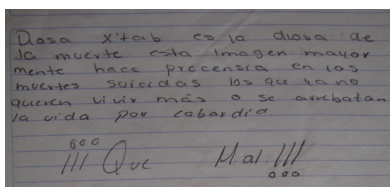 Diosa x'tab es la diosa de
la muerte esta imagen mayor
mente hace precensia en las
muertes suicidas los que ya no
quieren vivir más o se arrebatan
la vida por cobardia
ooo
||| Que Mal |||
ooo